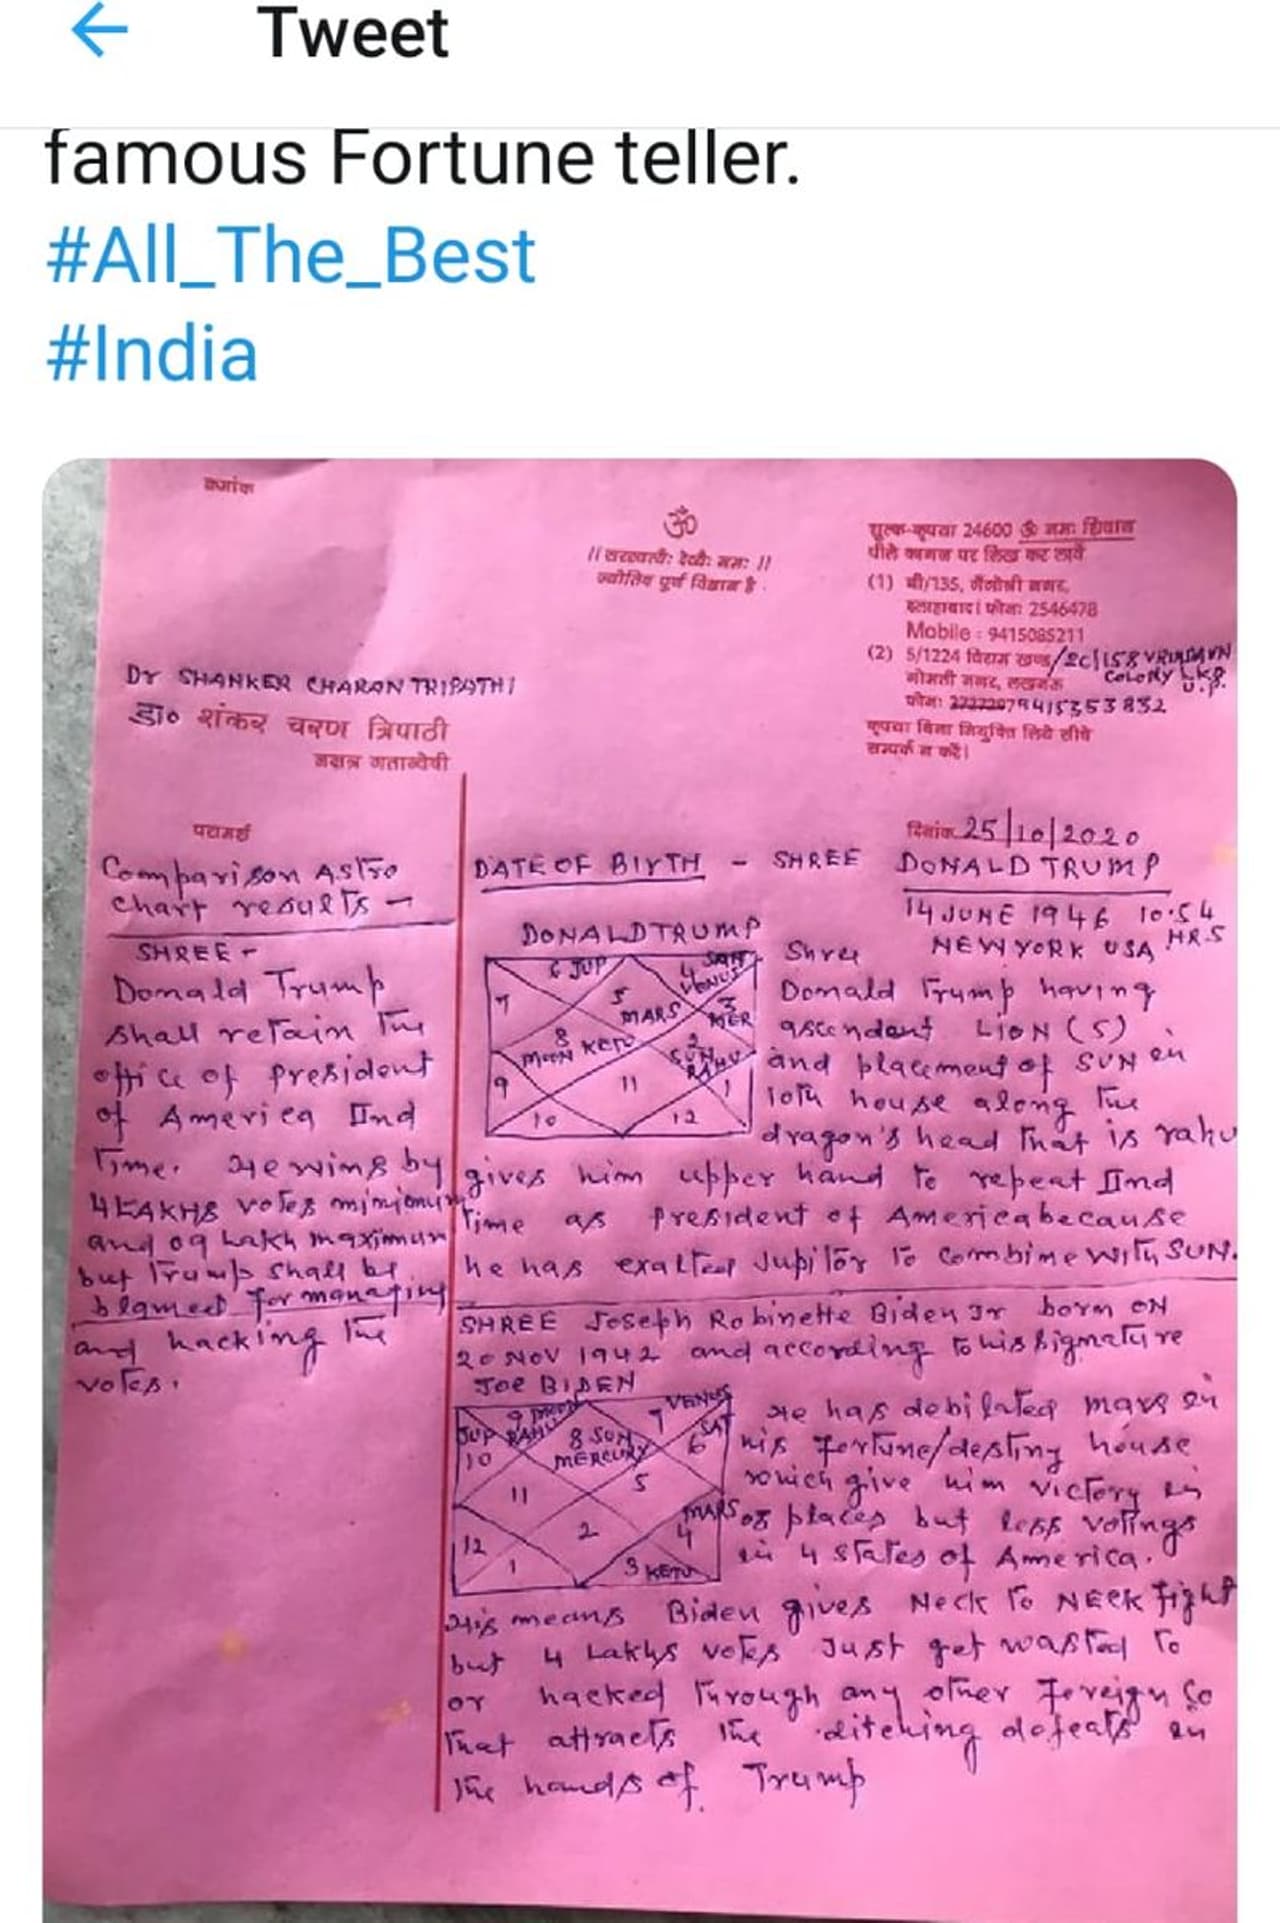 Tweet
famous Fortune teller.
#All_The_Best
#India
क्रमांक
ॐ
// सरस्वत्यैः देव्यैः नमः //
ज्योतिष पूर्ण विज्ञान है
शुल्क-कृपया 24600 ॐ नमः शिवाय
पीले कागज पर लिख कर लायें
(1) बी/135,
इलाहाबाद। फोनः 2546478
Mobile : 9415085211
(2) 5/1224 विराम खण्ड/2C/158 VRINDAVN
गोमती नगर, लखनऊ COLONY LKO
U.P.
फोनः 9415353832
कृपया बिना नियुक्ति लिये सीधे
सम्पर्क न करें।
Dr SHANKER CHARAN TRIPATHI
डा० शंकर चरण त्रिपाठी
नक्षत्र
परामर्श
दिनांक 25/10/2020
Comparison Astro
chart results -
SHREE -
Donald Trump
shall retain the
office of president
of America IInd
Time. He wins by
4 LAKHS votes minimum
and 09 Lakh maximum
but Trump shall be
blamed for managing
and hacking the
votes.
DATE OF BIrTH - SHREE DONALD TRUMP
14 JUNE 1946 10.54
HRS
NEW YORK USA
DONALD TRUMP
6 JUP
4 SAT
VENUS
7
5
MARS
3
MER
8
MOON KETU
2
SUN
RAHU
9
11
1
10
12
Shree
Donald Trump having
ascendant LION (5)
and placement of SUN in
10th house along the
dragon's head that is rahu
gives him upper hand to repeat IInd
time as president of America because
he has exalted Jupitor to combine with SUN.
SHREE Joseph Robinette Biden Jr born ON
20 NOV 1942 and according to his signature
JOE BIDEN
9 MOON
7 VENUS
JUP RAHU
10
8 SUN
MERCURY
SAT
6
11
5
MARS
4
2
12
1
3 KETU
He has debilated mars in
his fortune/destiny house
which give him victory in
08 places but less votings
in 4 states of America.
His means Biden gives Neck to NECK fight
but 4 Lakhs votes Just get wasted to
or hacked through any other foreign so
that attracts the ditching defeats in
the hands of Trump